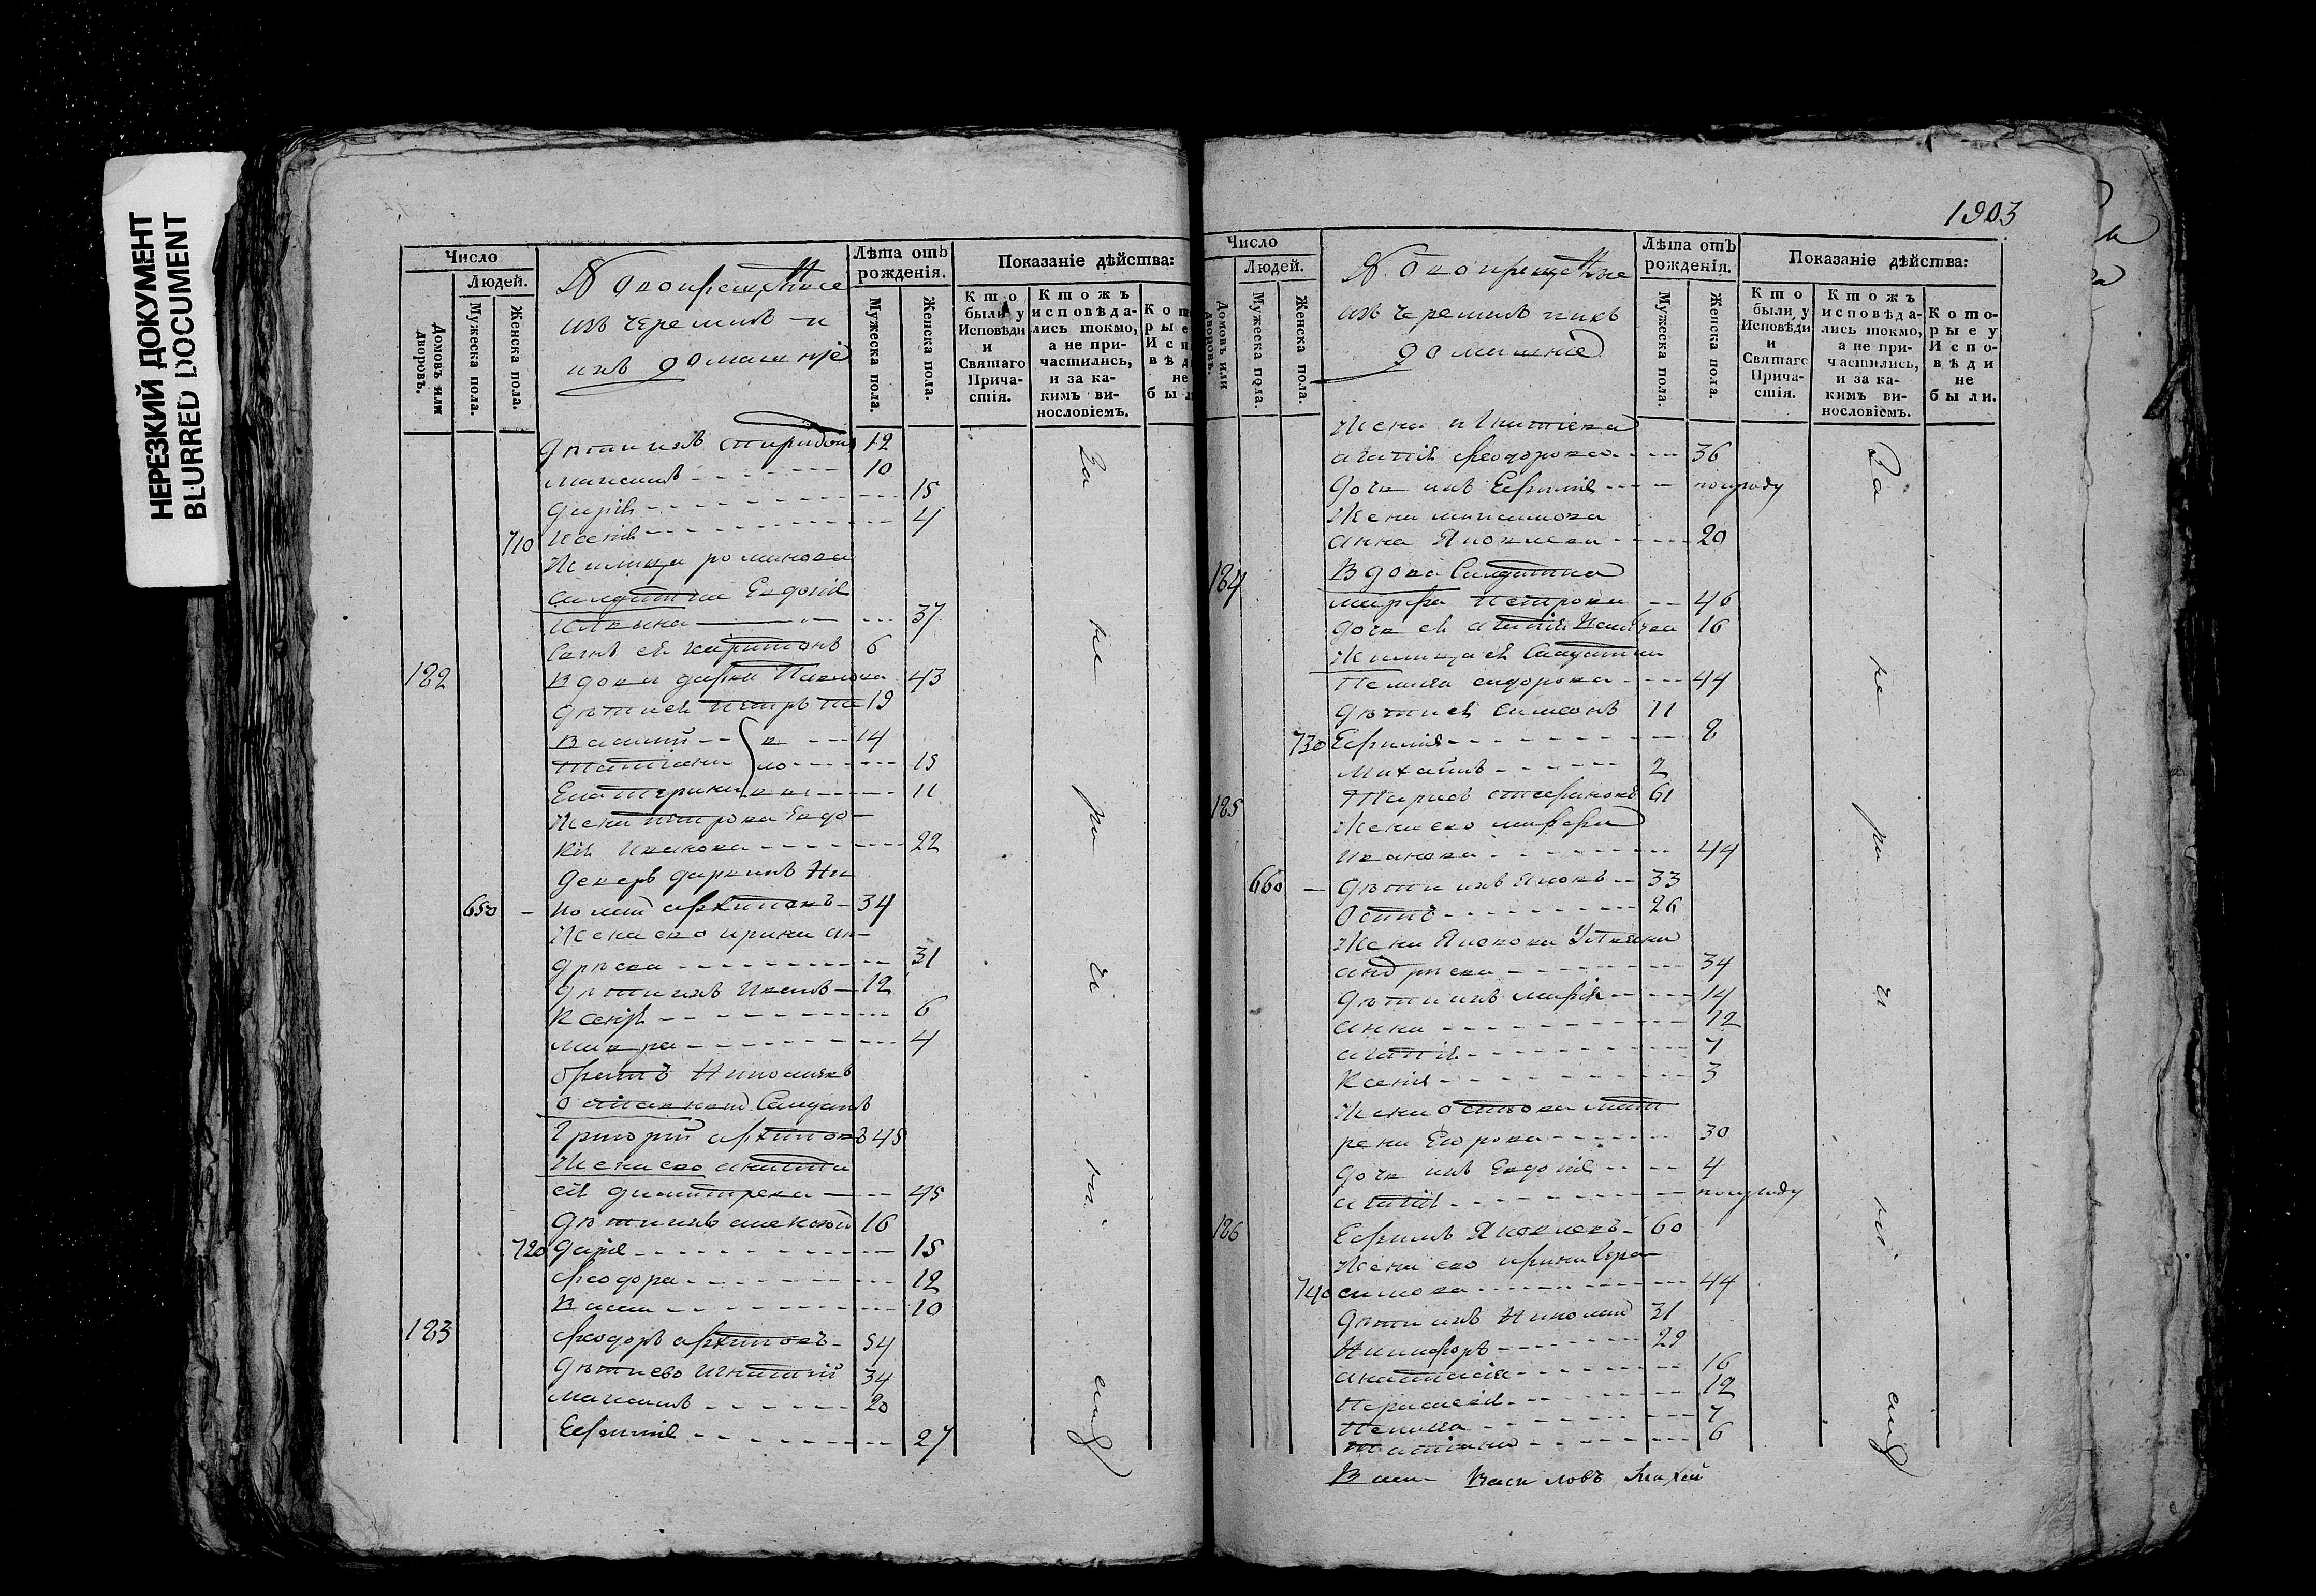 НЕРЕЗКИЙ ДОКУМЕНТ
BLURRED DOCUMENT
Число
Людей.
Домовъ или дворовъ.
Мужеска пола.
Женска пола.
Новокрещенные
изъ черемисъ и
ихъ домашніе
Лѣта отъ рожденія.
Мужеска пола.
Женска пола.
Показаніе дѣйства:
Кто были у Исповѣди и Святаго Причастія.
Ктожъ исповѣдались токмо, а не причастились, и за какимъ винословіемъ.
дѣти ихъ спиридонъ 12
максимъ 10
дарія 15
710 ксенія 4
Жилица романова
салдатка Евдокія
37
Сынъ ея харитонъ 6
182 Вдова дарья Павлова 43
дѣти ея петръ 19
Василий 14
Татіана 15
Екатерина 11
Жена петрова Евдо
кія Иванова 22
деверь дарьинъ Ни
650 колай архиповъ 34
Жена его ирина ан
дрѣева 31
дѣти ихъ Иванъ 12
Ксенія 6
мавра 4
братъ Николаевъ
отставной Салдатъ
Григорій архиповъ 45
Жена его анаста
сія димитрева 45
дѣти ихъ алексѣй 16
720 дарія 15
феодора 12
Васса 10
183 феодоръ архиповъ 54
дѣти ево игнатий 34
максимъ 20
Евфимія 27
За не ра че ні емъ
1903
Число
Людей.
Домовъ или дворовъ.
Мужеска пола.
Женска пола.
Новокрещенные
изъ черемисъ и ихъ
домашніе
Лѣта отъ рожденія.
Мужеска пола.
Женска пола.
Показаніе дѣйства:
Кто были у Исповѣди и Святаго Причастія.
Ктожъ исповѣдались токмо, а не причастились, и за какимъ винословіемъ.
Которые у Исповѣди не были.
Жена игнатіева
агапія феодорова 36
дочь ихъ Евфимія полугоду
Жена максимова
анна Яковлева 20
184 Вдова Салдатка
марфа Петрова 46
дочь ея 16
Жилица ея Салдатка
Пелагия сидорова 44
дѣти ея симеонъ 11
730 Евфимія 8
Михаилъ 2
185 стефановъ 61
Жена его марфа
Иванова 44
660 дѣти ихъ Яковъ 33
Осипъ 26
Жена Яковова Устинья
андрѣева 34
дѣти ихъ марія 14
анна 12
агапія 7
Ксенія 3
Жена осипова мат
рена Егорова 30
дочь ихъ Евдокія 4
агапія полугоду
186 Евфимъ Яковлевъ 60
Жена его ирина Гера
740 симова 44
дѣти ихъ Николай 31
Никифоръ 29
анастасія 16
Параскевія 12
Пелагия 7
Татіана 6
За не ра че ні емъ